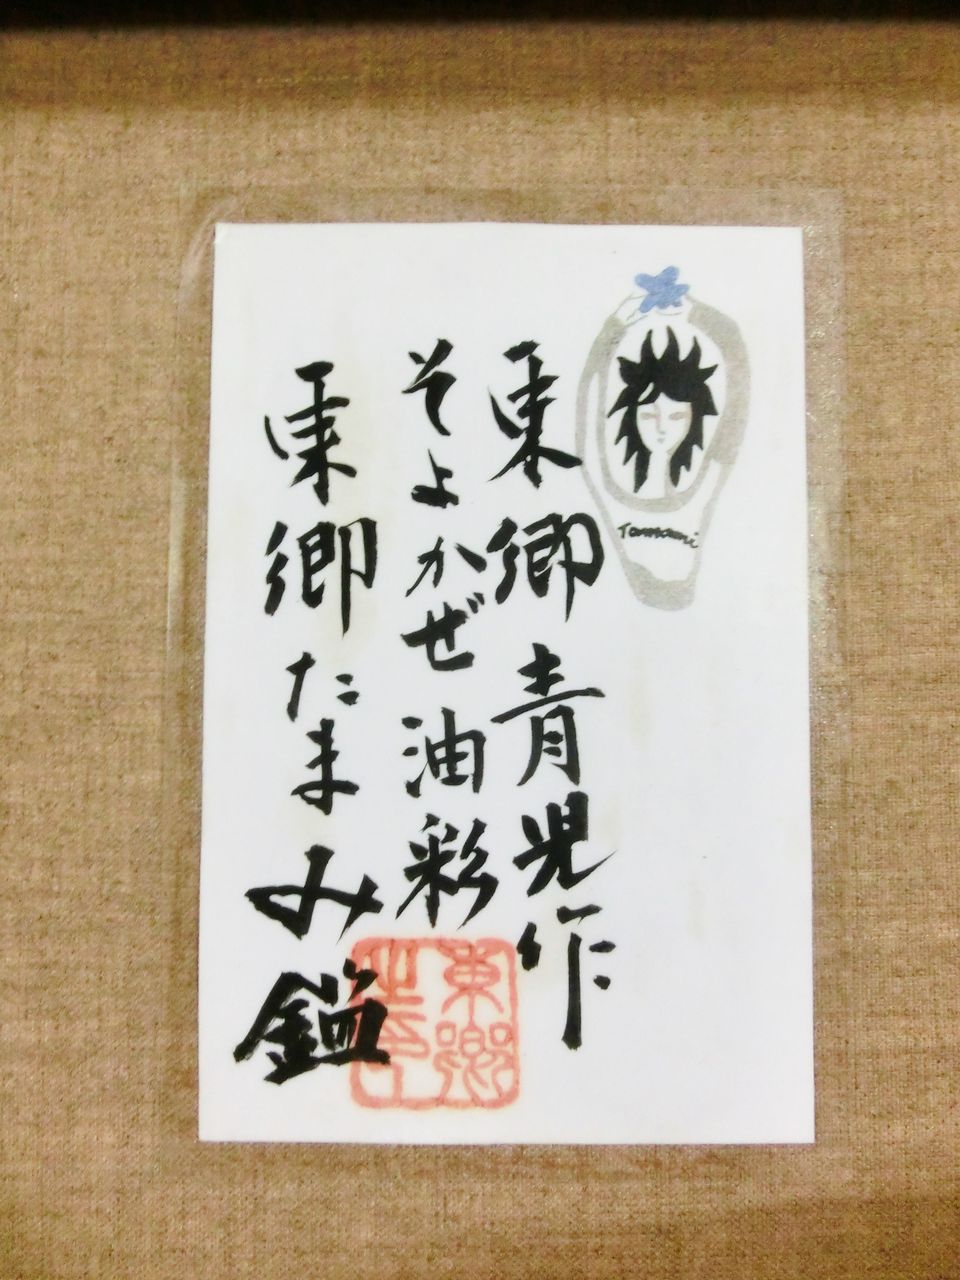 東郷青児作
そよかぜ油彩
東郷たまみ鑑
Tamami
東郷之印